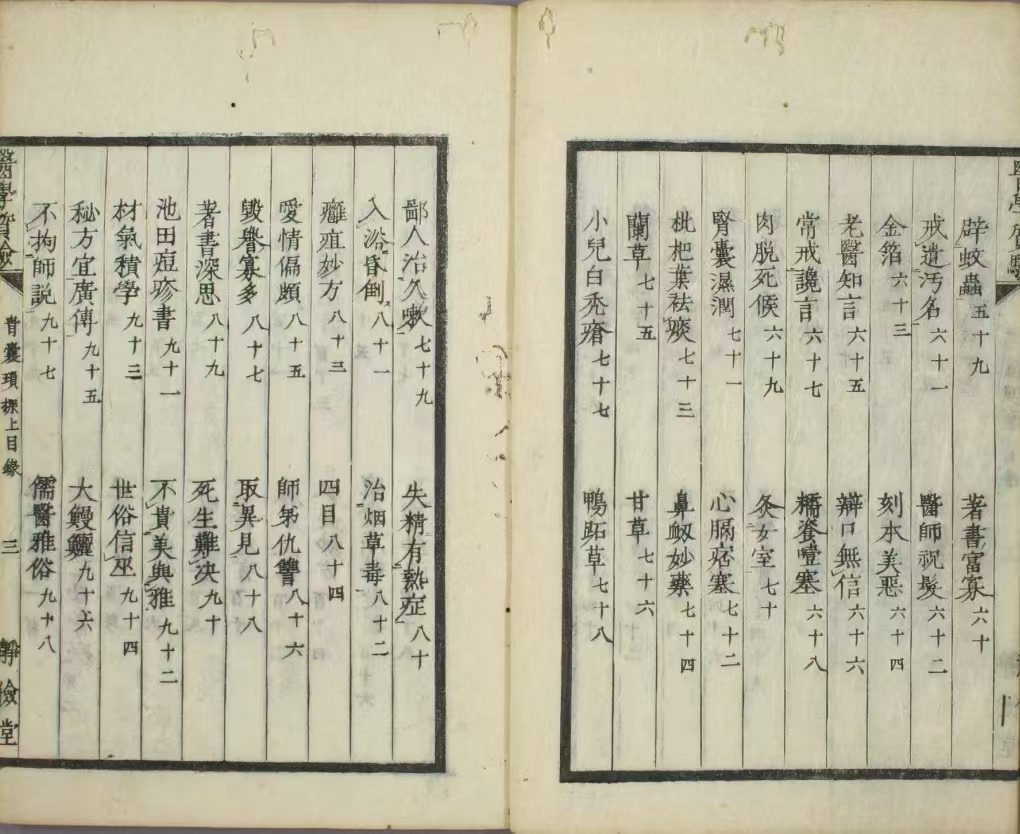 辟蚊蟲 五十九 著書富寡 六十
戒遺汚名 六十一 醫師祝髮 六十二
金箔 六十三 刻本美惡 六十四
老醫知言 六十五 辯口無信 六十六
常戒讒言 六十七 噎塞 六十八
肉脱死候 六十九 灸女室 七十
腎囊濕潤 七十一 心膈痞塞 七十二
枇杷葉祛痰 七十三 鼻衂妙藥 七十四
蘭草 七十五 甘草 七十六
小兒白禿瘡 七十七 鴨跖草 七十八
鄙人治久嗽 七十九 失精有熱症 八十
入浴昏倒 八十一 治烟草毒 八十二
癰疽妙方 八十三 四目 八十四
愛情偏頗 八十五 師弟仇讐 八十六
毀譽寡多 八十七 取異見 八十八
著書深思 八十九 死生難决 九十
池田痘疹書 九十一 不貴美與雅 九十二
材氣積學 九十三 世俗信巫 九十四
秘方宜廣傳 九十五 大鰻鱺 九十六
不拘師説 九十七 儒醫雅俗 九十八
青囊瑣探上目錄 三 靜儉堂